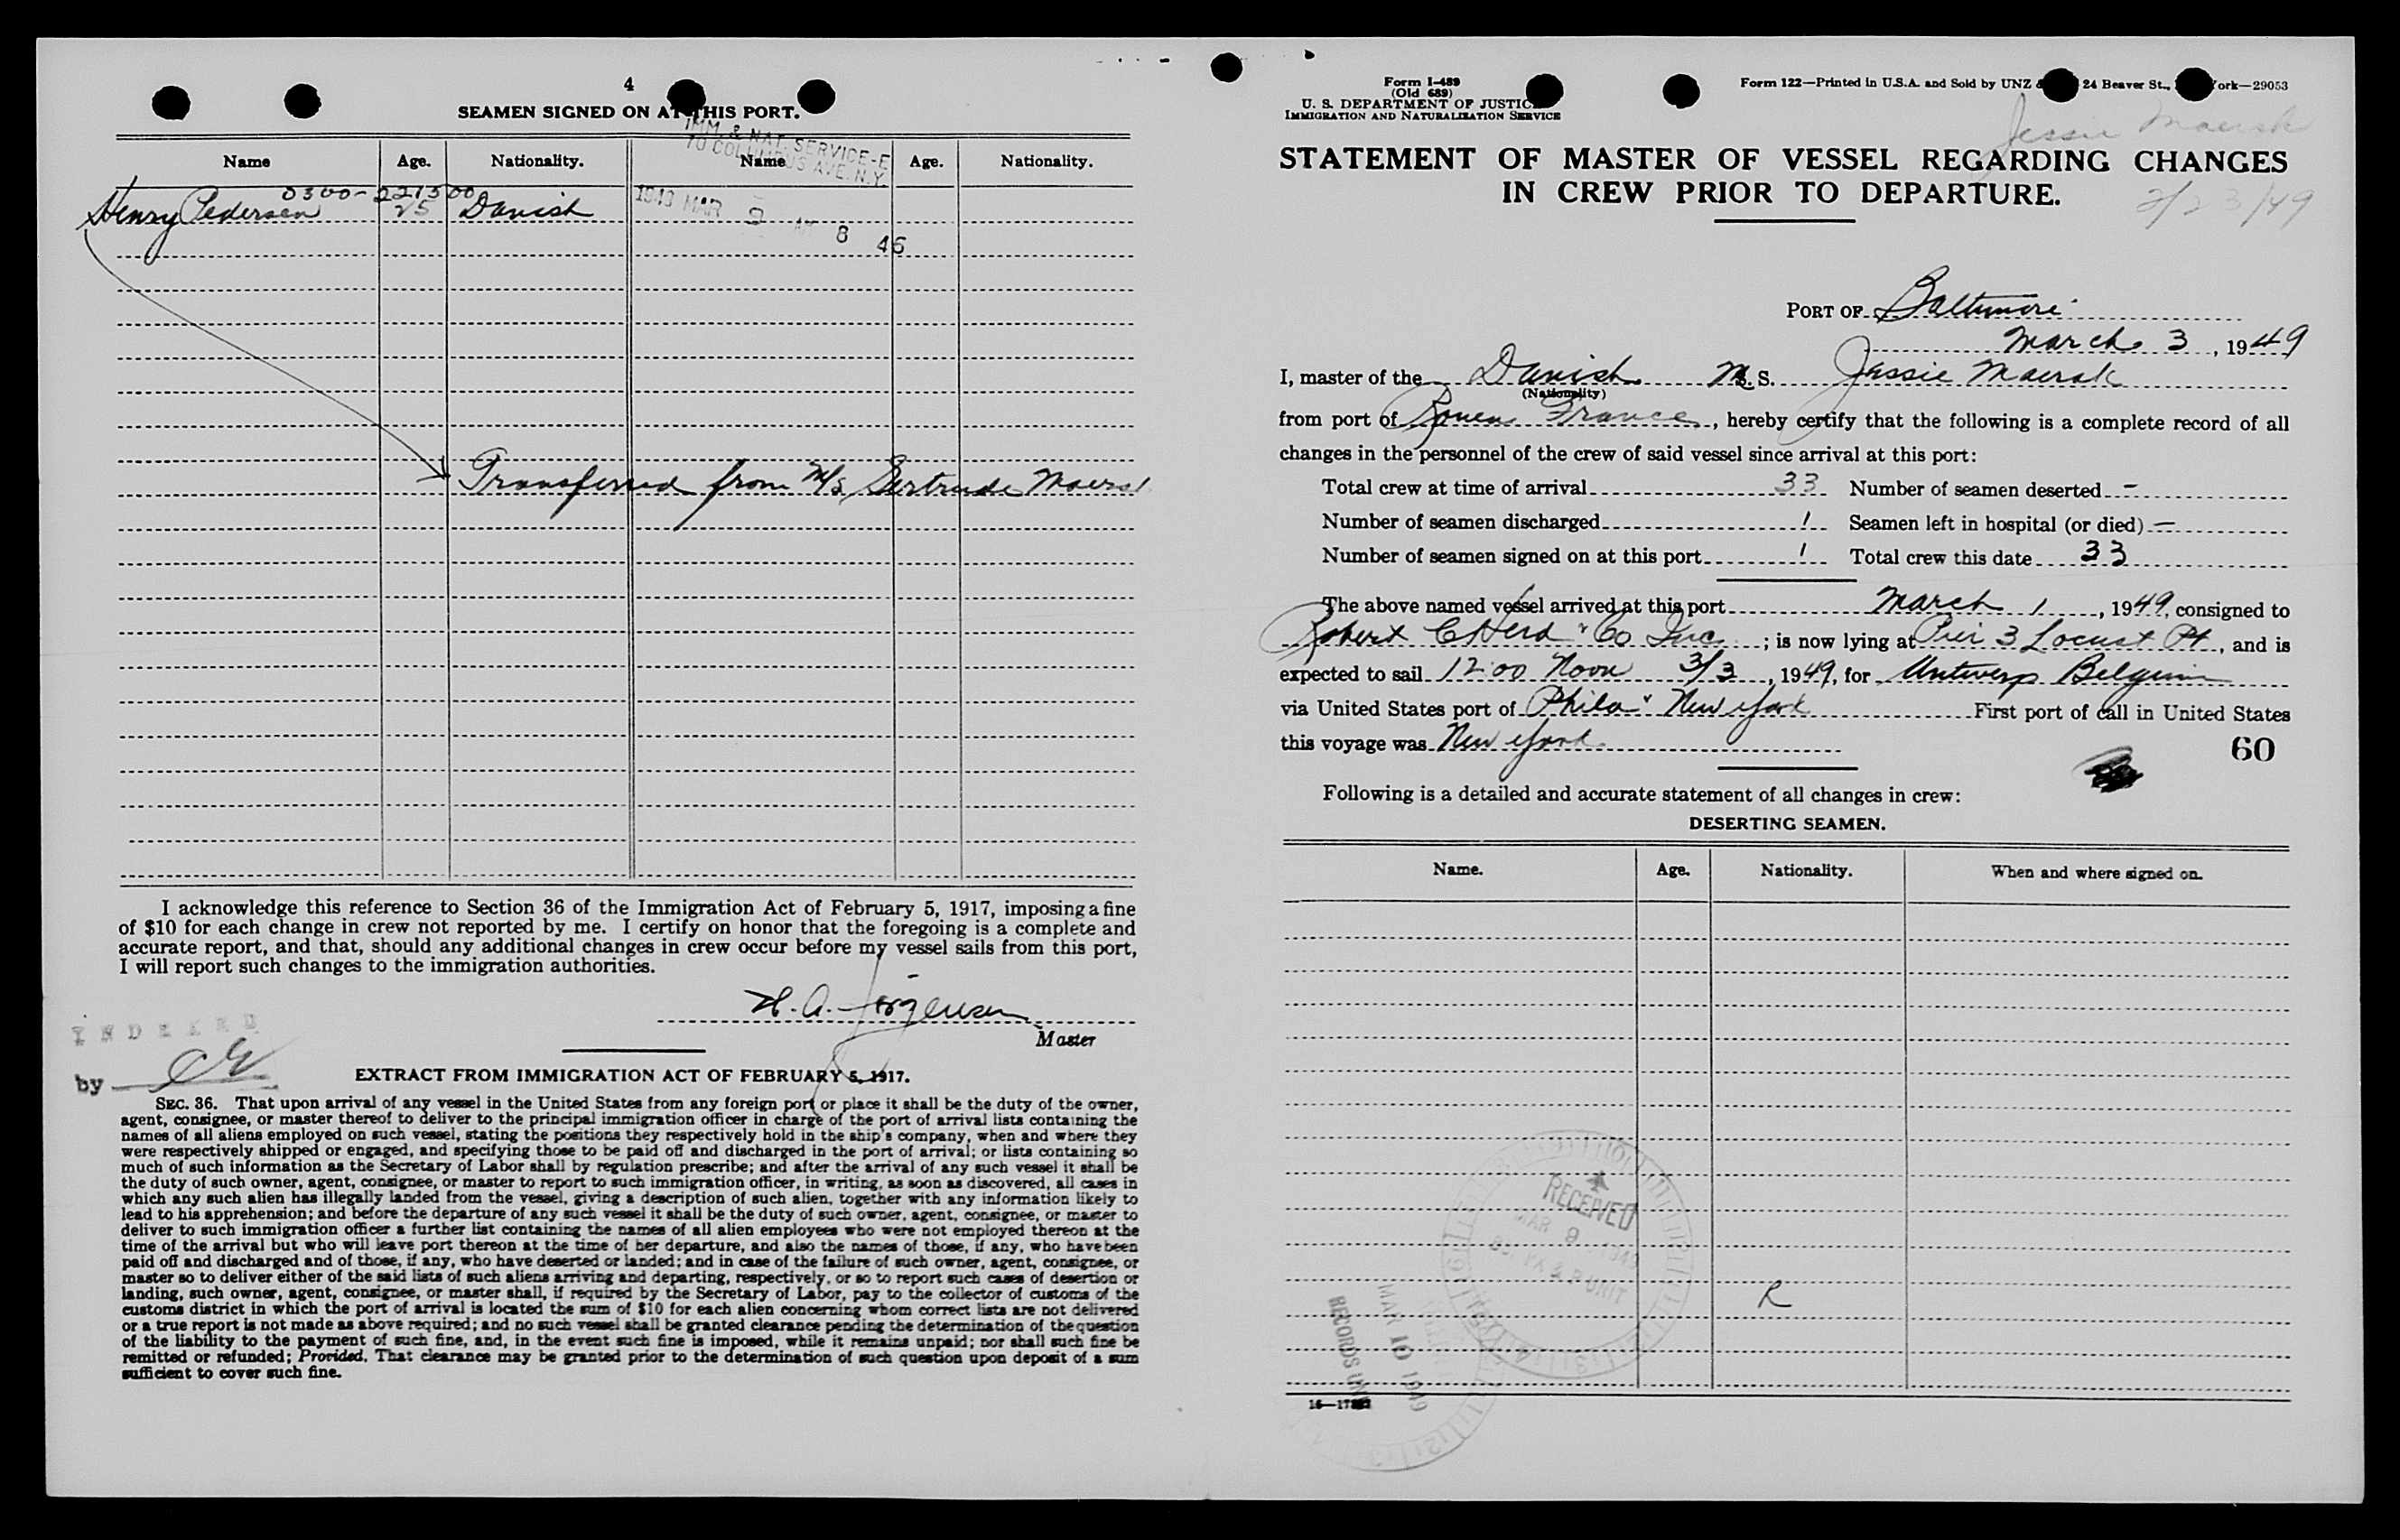 4
SEAMEN SIGNED ON AT THIS PORT.
IMM. & NAT. SERVICE-E
70 COLUMBUS AVE. N.Y.
1949 MAR 9 AM 8 46
Name Age. Nationality. Name Age. Nationality.
0300-221500
Henry Pedersen 25 Danish
Transferred from M/S Gertrude Maersk
I acknowledge this reference to Section 36 of the Immigration Act of February 5, 1917, imposing a fine
of $10 for each change in crew not reported by me. I certify on honor that the foregoing is a complete and
accurate report, and that, should any additional changes in crew occur before my vessel sails from this port,
I will report such changes to the immigration authorities.
H. A. Jörgensen
Master
INDEXED
by
EXTRACT FROM IMMIGRATION ACT OF FEBRUARY 5, 1917.
SEC. 36. That upon arrival of any vessel in the United States from any foreign port or place it shall be the duty of the owner,
agent, consignee, or master thereof to deliver to the principal immigration officer in charge of the port of arrival lists containing the
names of all aliens employed on such vessel, stating the positions they respectively hold in the ship's company, when and where they
were respectively shipped or engaged, and specifying those to be paid off and discharged in the port of arrival; or lists containing so
much of such information as the Secretary of Labor shall by regulation prescribe; and after the arrival of any such vessel it shall be
the duty of such owner, agent, consignee, or master to report to such immigration officer, in writing, as soon as discovered, all cases in
which any such alien has illegally landed from the vessel, giving a description of such alien, together with any information likely to
lead to his apprehension; and before the departure of any such vessel it shall be the duty of such owner, agent, consignee, or master to
deliver to such immigration officer a further list containing the names of all alien employees who were not employed thereon at the
time of the arrival but who will leave port thereon at the time of her departure, and also the names of those, if any, who have been
paid off and discharged and of those, if any, who have deserted or landed; and in case of the failure of such owner, agent, consignee, or
master so to deliver either of the said lists of such aliens arriving and departing, respectively, or so to report such cases of desertion or
landing, such owner, agent, consignee, or master shall, if required by the Secretary of Labor, pay to the collector of customs of the
customs district in which the port of arrival is located the sum of $10 for each alien concerning whom correct lists are not delivered
or a true report is not made as above required; and no such vessel shall be granted clearance pending the determination of the question
of the liability to the payment of such fine, and, in the event such fine is imposed, while it remains unpaid; nor shall such fine be
remitted or refunded; Provided, That clearance may be granted prior to the determination of such question upon deposit of a sum
sufficient to cover such fine.
Form I-489
(Old 689)
U. S. DEPARTMENT OF JUSTICE
IMMIGRATION AND NATURALIZATION SERVICE
Form 122—Printed in U.S.A. and Sold by UNZ & 24 Beaver St., York—29053
Jessie Maersk
STATEMENT OF MASTER OF VESSEL REGARDING CHANGES
IN CREW PRIOR TO DEPARTURE.
2/23/49
PORT OF Baltimore
March 3, 1949
I, master of the Danish M. S. Jessie Maersk
(Nationality)
from port of Rouen France, hereby certify that the following is a complete record of all
changes in the personnel of the crew of said vessel since arrival at this port:
Total crew at time of arrival 33 Number of seamen deserted —
Number of seamen discharged 1 Seamen left in hospital (or died) —
Number of seamen signed on at this port 1 Total crew this date 33
The above named vessel arrived at this port March 1, 1949, consigned to
Robert C Herd & Co Inc; is now lying at Pier 3 Locust Pt, and is
expected to sail 12:00 Noon 3/3, 1949, for Antwerp Belgium
via United States port of Phila & New York First port of call in United States
this voyage was New York
60
Following is a detailed and accurate statement of all changes in crew:
DESERTING SEAMEN.
Name. Age. Nationality. When and where signed on.
RECEIVED
MAR 9 1949
R
MAR 10 1949
RECORDS UNIT